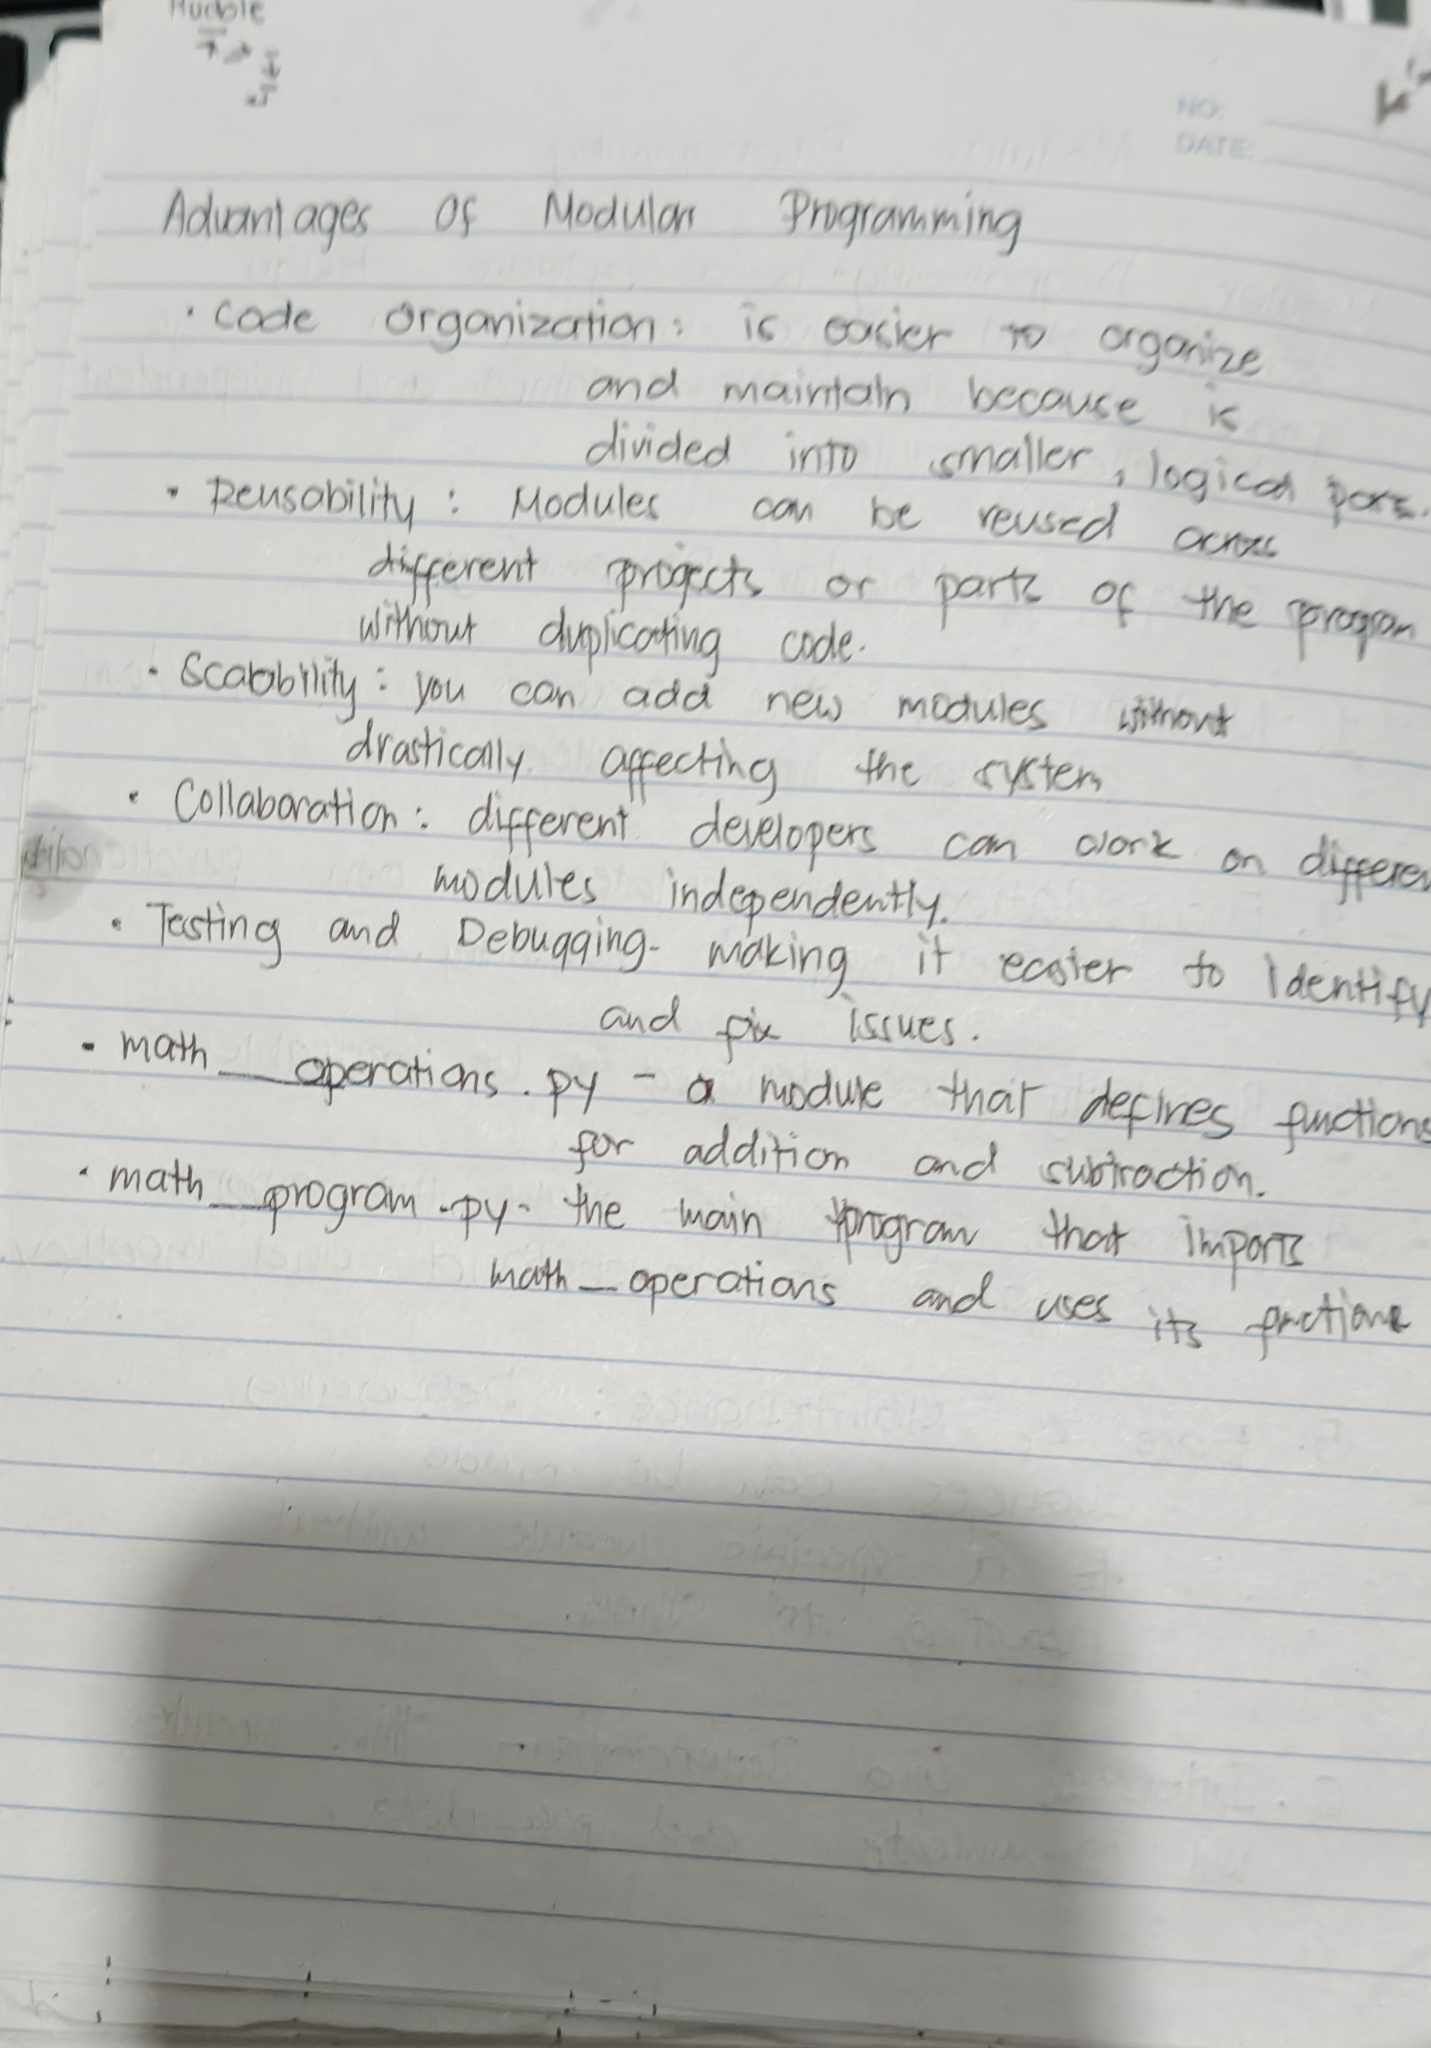 NO:
DATE:
Advantages Of Modular Programming
• Code Organization: is easier to organize
and maintain because is
divided into smaller, logical
• Reusability: Modules can be reused across
different projects or parts of the program
without duplicating code.
• Scalability: you can add new modules without
drastically affecting the system
• Collaboration: different developers can work on differen
modules independently.
• Testing and Debugging- making it easier to Identify
and fix issues.
- math_operations.py - a module that defines functions
for addition and subtraction.
• math_program.py- the main program that imports
math_operations and uses its